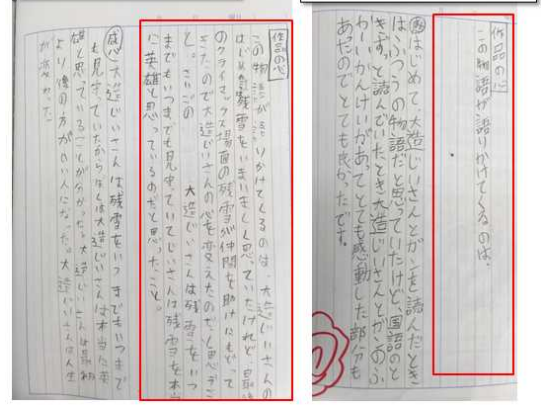 作品の心
この物語が語りかけてくるのは、大造じいさんの
はじめは残雪をいまいましく思っていたけれど、最後
のクライマックス場面の残雪が仲間を助けにもどって
きたので大造じいさんの心を変えたのだと思うこ
と。さいごの 大造じいさんは残雪をいつ
までもいつまでも見守っていてじいさんは残雪を本当
に英雄と思っているのだと思ったこと。
感 大造じいさんは残雪をいつまでもいつまで
も見守っていたから 大造じいさんは本当に英
雄と思っていることが分かった。大造じいさんは最初
より後の方がいい人になった。大造じいさんは人生
が変わった。
作品の心
この物語が語りかけてくるのは、
はじめて、大造じいさんとガンを読んだとき
はふつうの物語だと思っていたけど、国語のと
きずっと読んでいたとき大造じいさんとガンのふ
かーいかんけいがあって、とても感動した部分も
あったのでとても良かったです。